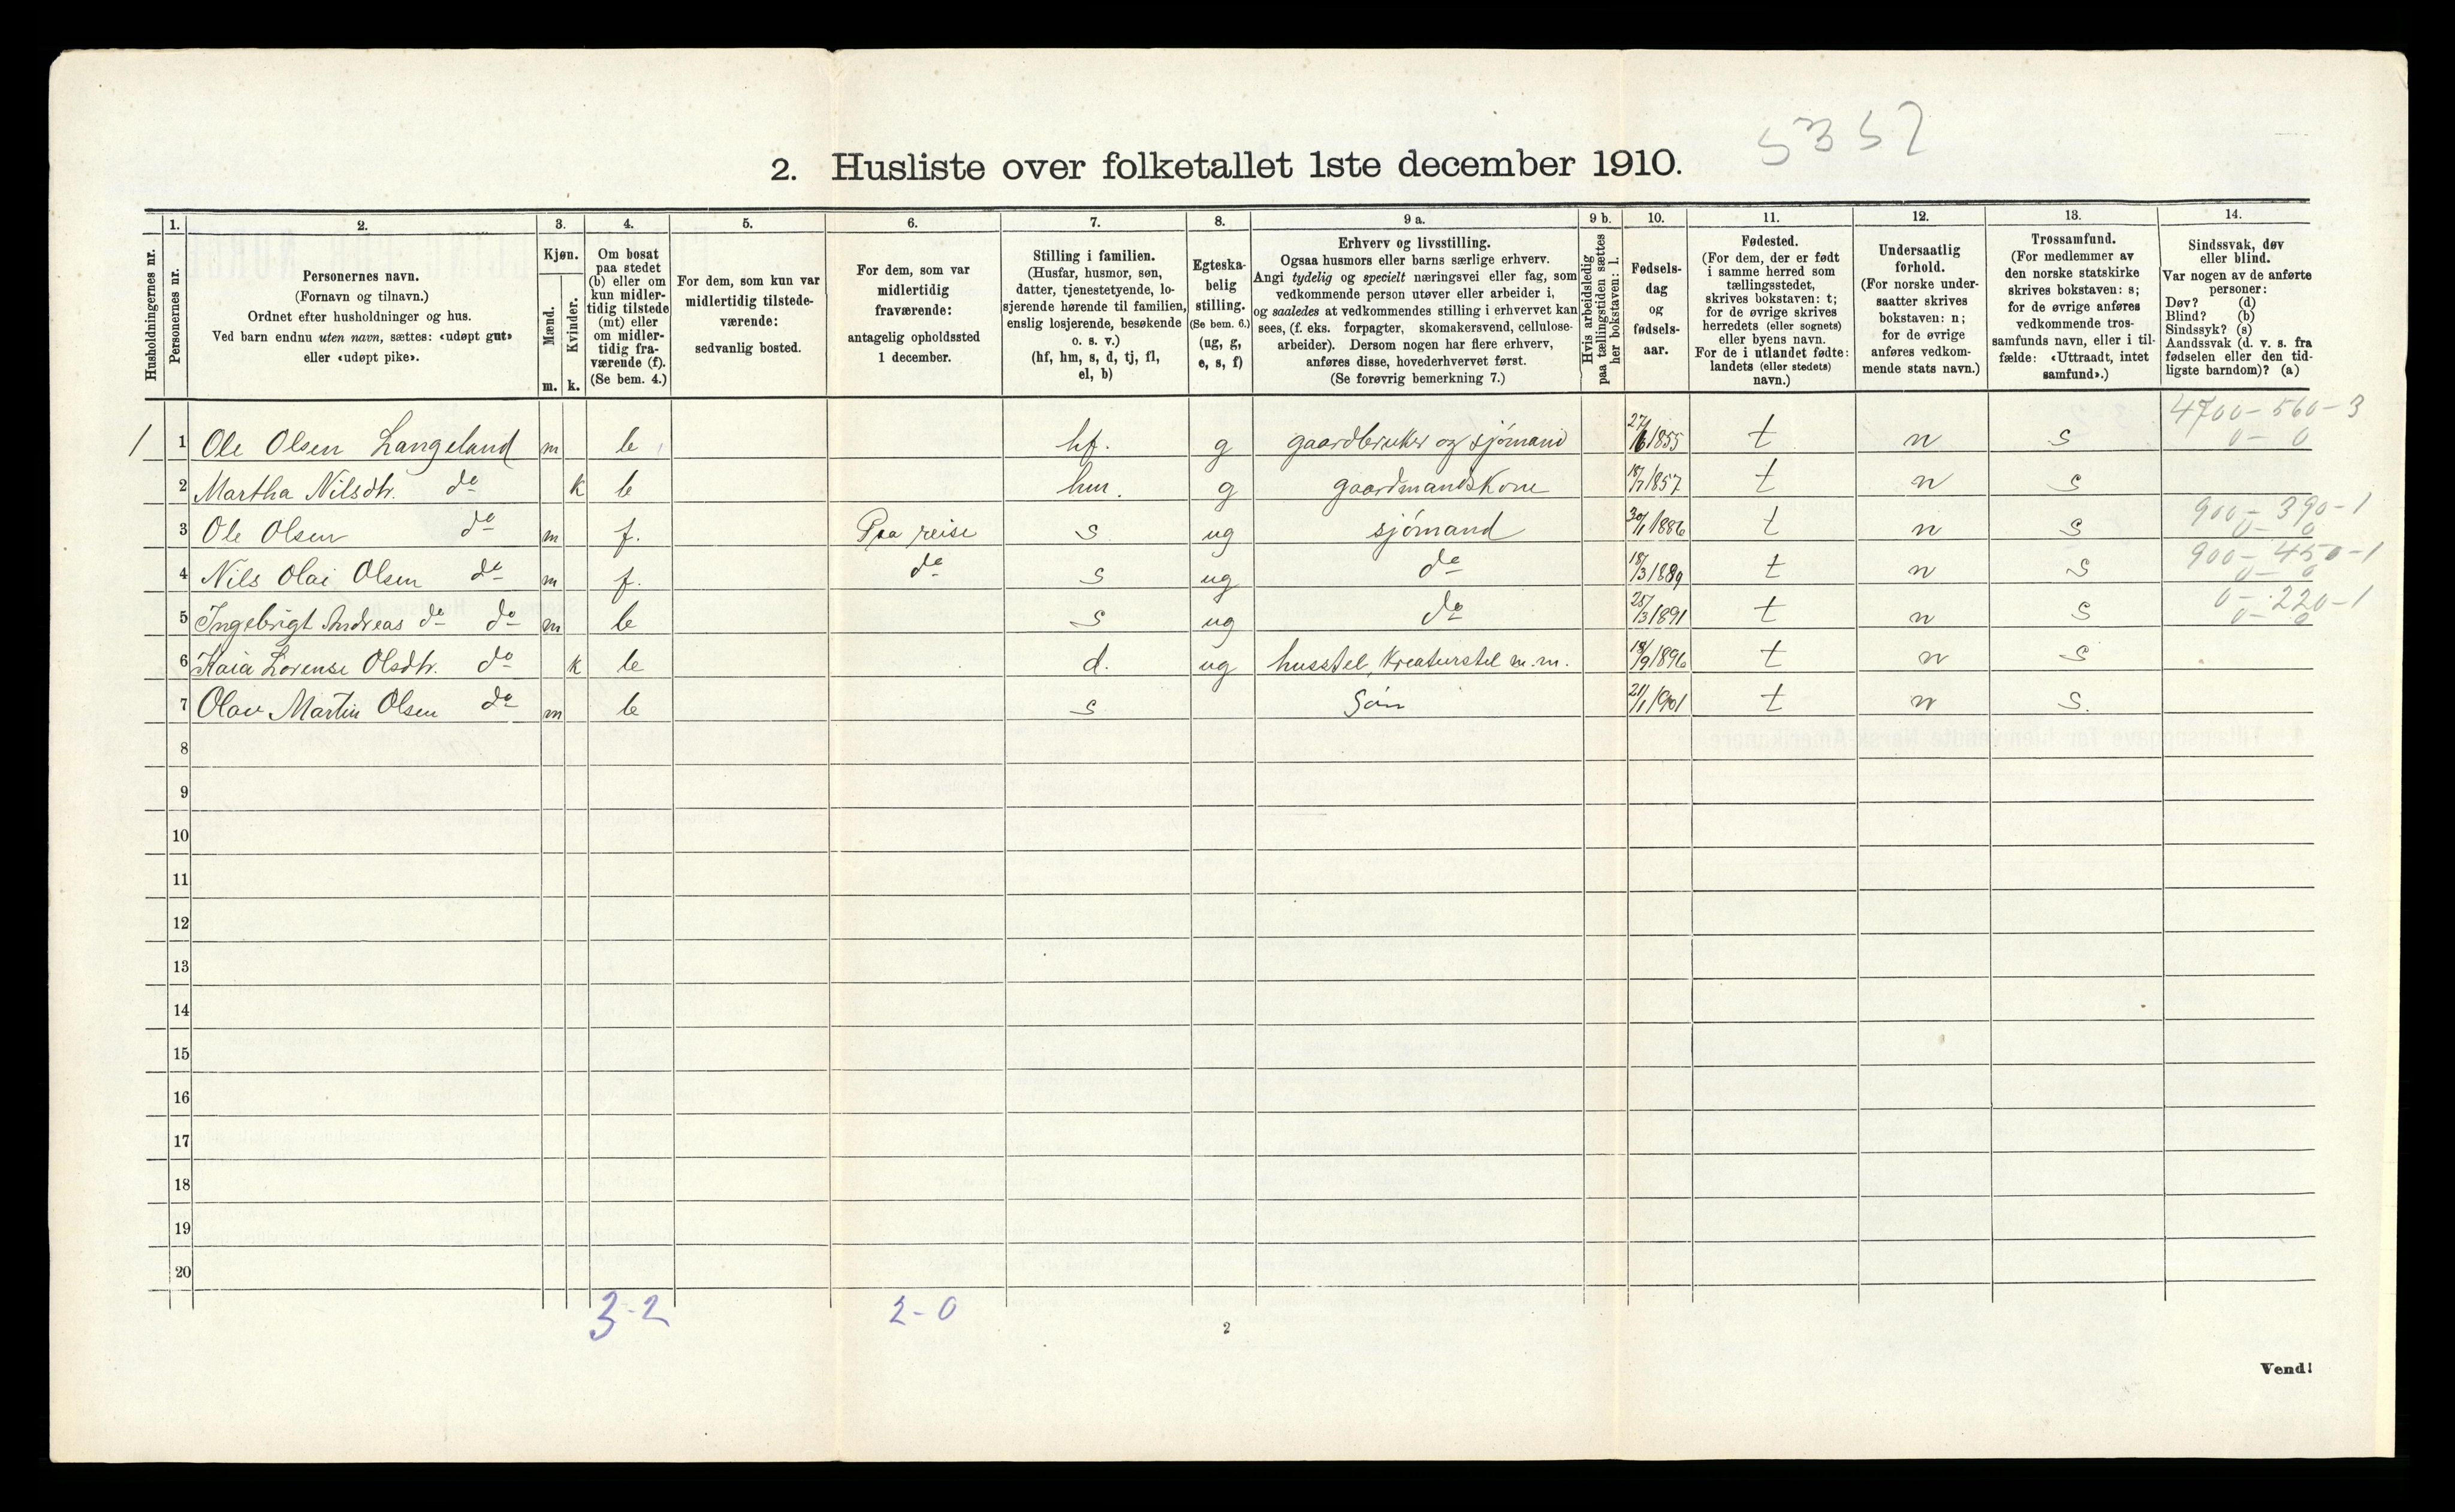 5352
2. Husliste over folketallet 1ste december 1910.
Husholdningernes nr.
1.
Personernes nr.
2.
Personernes navn.
(Fornavn og tilnavn.)
Ordnet efter husholdninger og hus.
Ved barn endnu uten navn, sættes: «udøpt gut»
eller «udøpt pike».
3.
Kjøn.
Mænd.
Kvinder.
m. k.
4.
Om bosat
paa stedet
(b) eller om
kun midler-
tidig tilstede
(mt) eller
om midler-
tidig fra-
værende (f).
(Se bem. 4.)
5.
For dem, som kun var
midlertidig tilstede-
værende:
sedvanlig bosted.
6.
For dem, som var
midlertidig
fraværende:
antagelig opholdssted
1 december.
7.
Stilling i familien.
(Husfar, husmor, søn,
datter, tjenestetyende, lo-
sjerende hørende til familien,
enslig losjerende, besøkende
o. s. v.)
(hf, hm, s, d, tj, fl,
el, b)
8.
Egteska-
belig
stilling.
(Se bem. 6.)
(ug, g,
e, s, f)
9 a.
Erhverv og livsstilling.
Ogsaa husmors eller barns særlige erhverv.
Angi tydelig og specielt næringsvei eller fag, som
vedkommende person utøver eller arbeider i,
og saaledes at vedkommendes stilling i erhvervet kan
sees, (f. eks. forpagter, skomakersvend, cellulose-
arbeider). Dersom nogen har flere erhverv,
anføres disse, hovederhvervet først.
(Se forøvrig bemerkning 7.)
9 b.
Hvis arbeidsledig
paa tællingstiden sættes
her bokstaven: l.
10.
Fødsels-
dag
og
fødsels-
aar.
11.
Fødested.
(For dem, der er født
i samme herred som
tællingsstedet,
skrives bokstaven: t;
for de øvrige skrives
herredets (eller sognets)
eller byens navn.
For de i utlandet fødte:
landets (eller stedets)
navn.)
12.
Undersaatlig
forhold.
(For norske under-
saatter skrives
bokstaven: n;
for de øvrige
anføres vedkom-
mende stats navn.)
13.
Trossamfund.
(For medlemmer av
den norske statskirke
skrives bokstaven: s;
for de øvrige anføres
vedkommende tros-
samfunds navn, eller i til-
fælde: «Uttraadt, intet
samfund».)
14.
Sindssvak, døv
eller blind.
Var nogen av de anførte
personer:
Døv? (d)
Blind? (b)
Sindssyk? (s)
Aandssvak (d. v. s. fra
fødselen eller den tid-
ligste barndom)? (a)
4700 - 560 - 3
1 1 Ole Olsen Langeland m b hf. g gaardbruker og sjömand 27/6 1855 t n s 0 - 0
2 Martha Nilsdtr. do k b hm. g gaardmandskone 18/7 1857 t n s
900 - 390 - 1
3 Ole Olsen do m f. Paa reise s ug sjömand 30/1 1886 t n s 0 - 0
900 - 450 - 1
4 Nils Olai Olsen do m f. do s ug do 18/3 1889 t n s 0 - 0
0 - 220 - 1
5 Ingebrigt Andreas do do m b s ug do 25/3 1891 t n s 0 - 0
6 Kaia Lorense Olsdtr. do k b d. ug husstel, kreaturstel m.m. 18/9 1896 t n s
7 Olav Martin Olsen do m b s Sön 21/1 1901 t n s.
8
9
10
11
12
13
14
15
16
17
18
19
20
3 - 2 2 - 0
2
Vend!